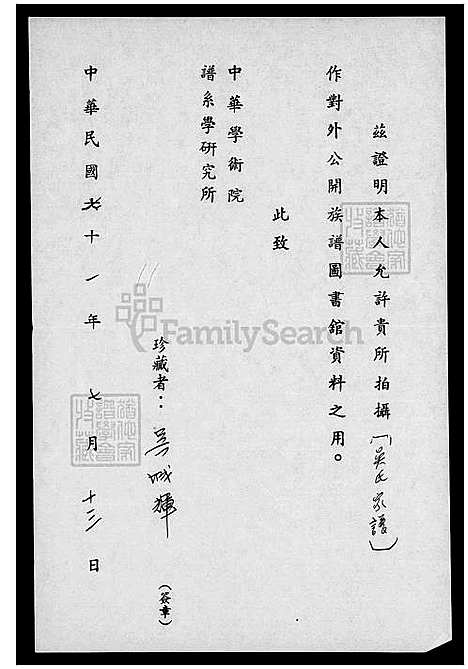 茲證明本人允許貴所拍攝(「吳氏家譜)
作對外公開族譜圖書館資料之用。
此致
中華學術院
譜系學研究所
珍藏者：吳城輝
(簽章)
中華民國七十一年七月十三日
FamilySearch